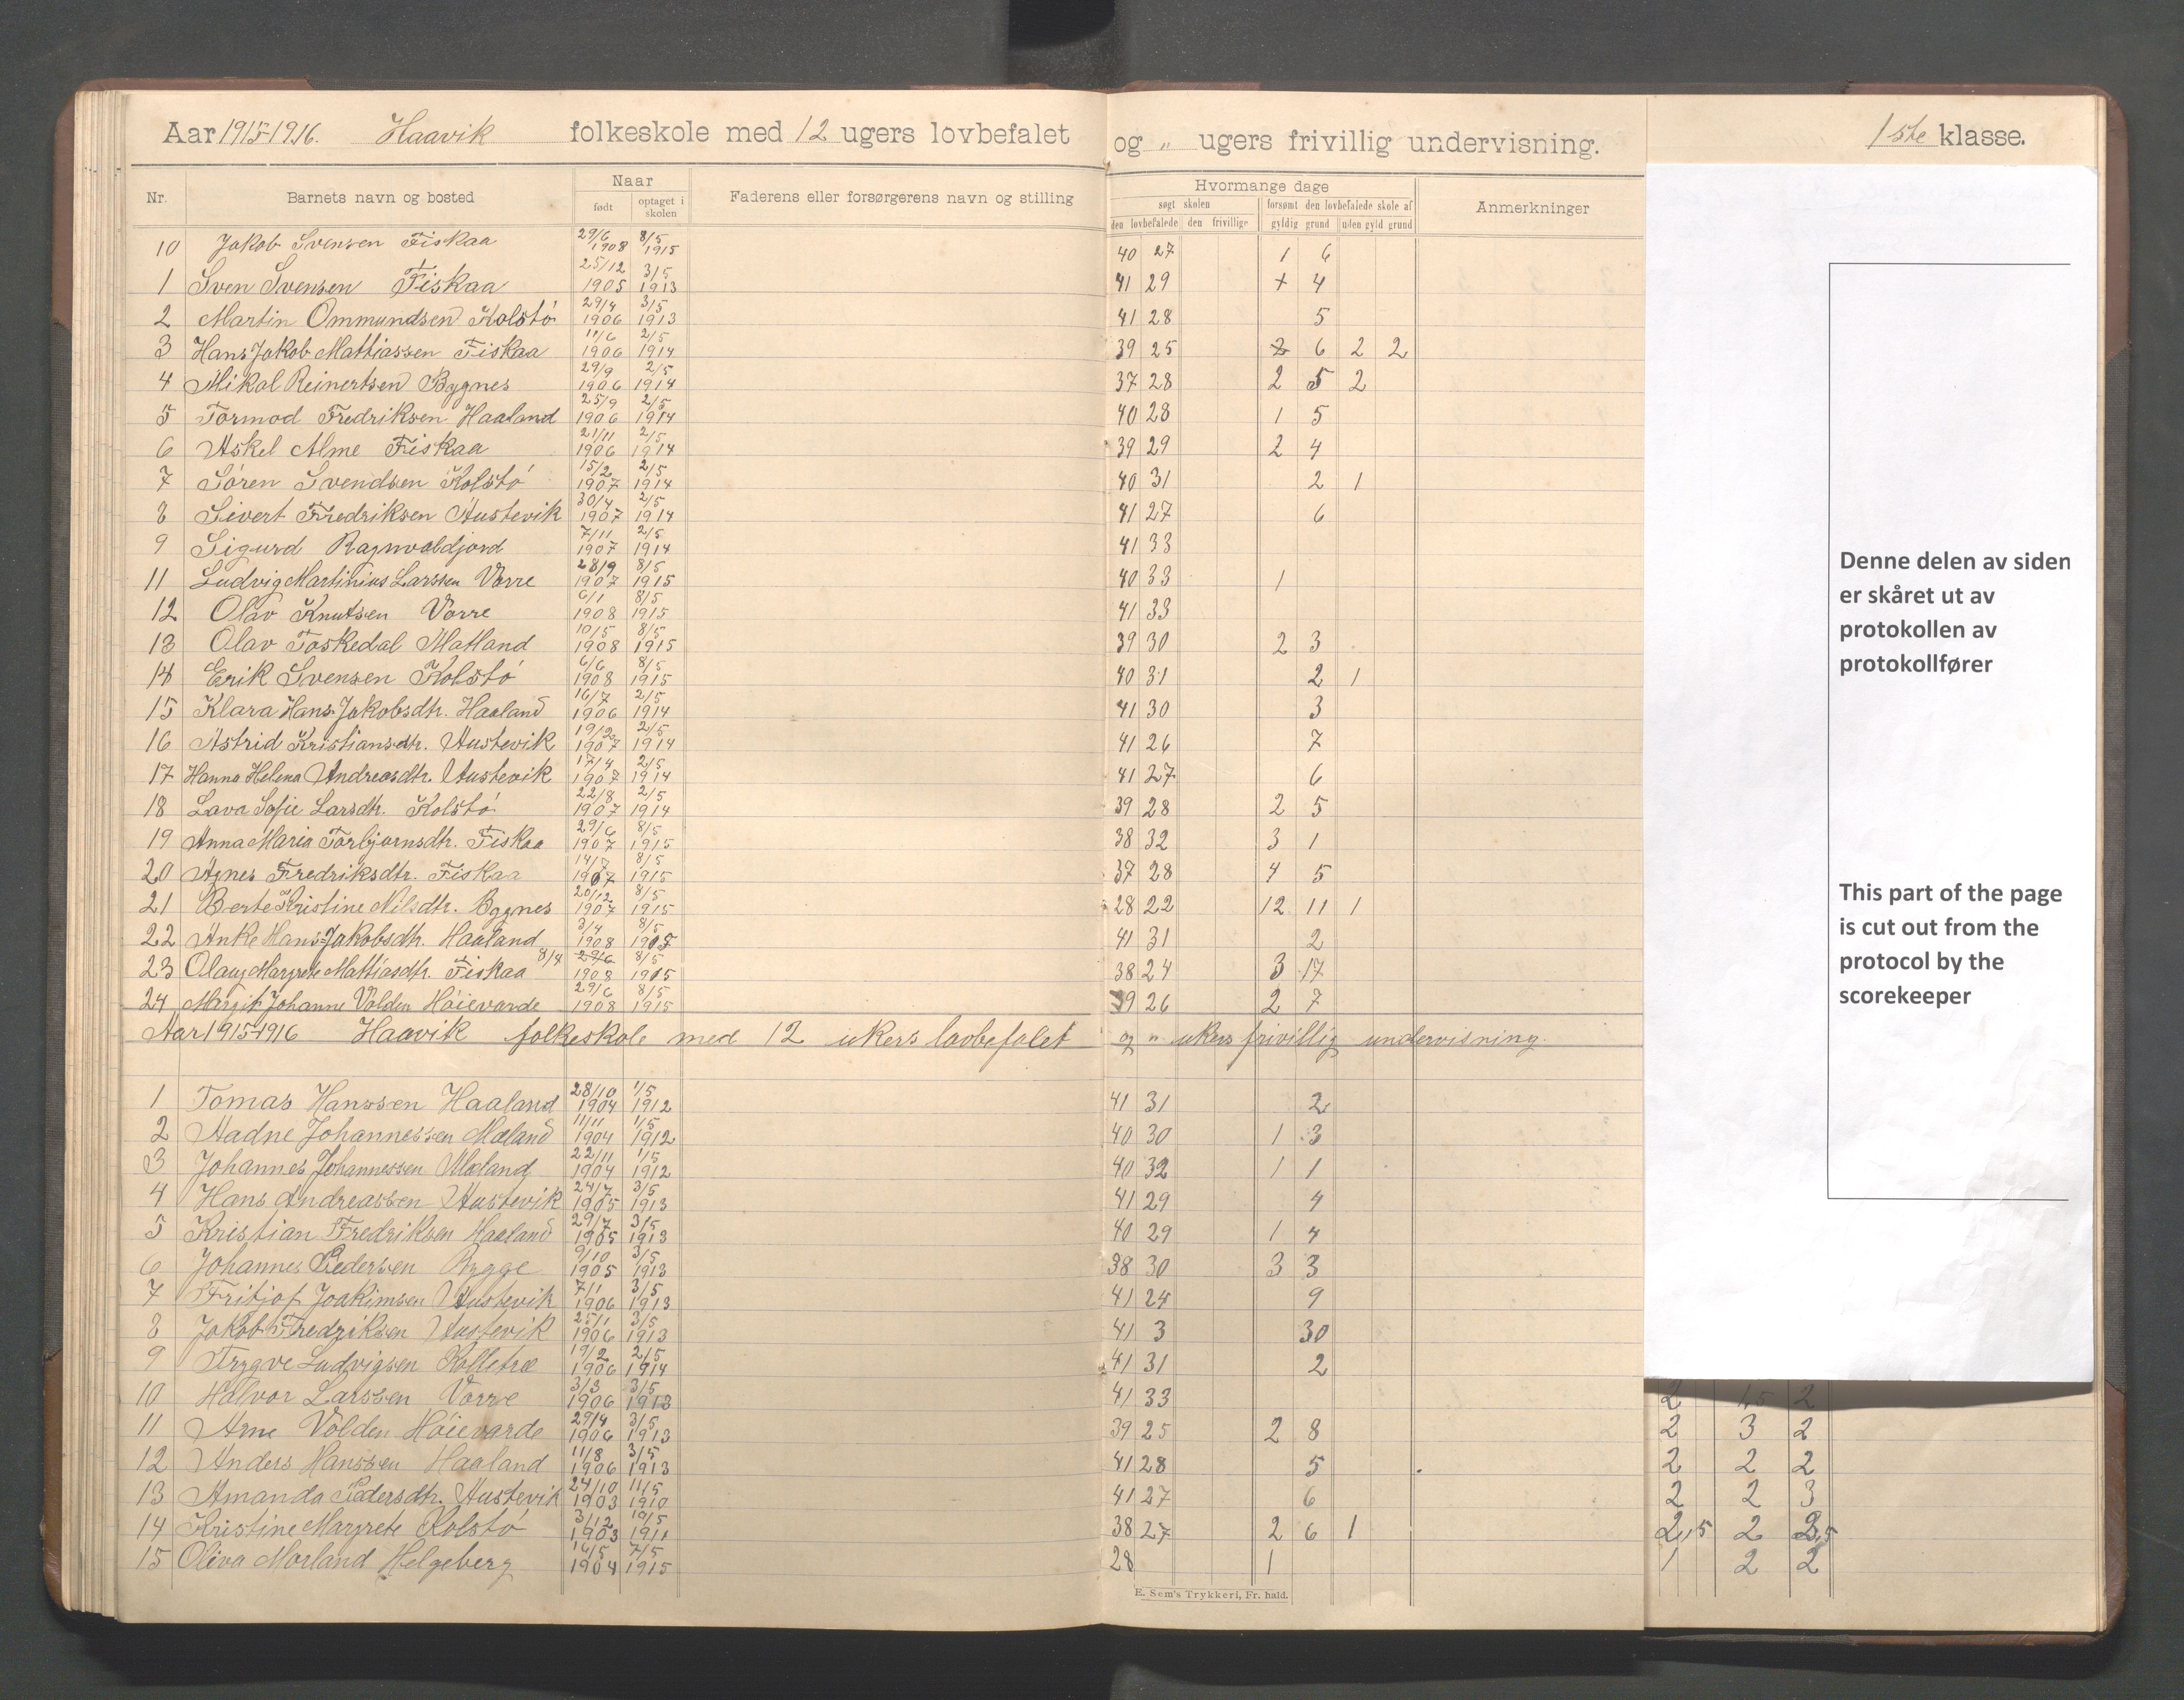 Aar 1915-1916. Haavik folkeskole med 12 ugers lovbefalet og „ ugers frivillig undervisning. 1ste klasse.
Nr. Barnets navn og bosted Naar født optaget i skolen Faderens eller forsørgerens navn og stilling Hvormange dage søgt skolen den lovbefalede den frivillige forsømt den lovbefalede skole af gyldig grund uden gyld grund Anmerkninger
10 Jakob Svensen Fiskaa 29/6 1908 8/5 1915 40 27 1 6
1 Sven Svensen Fiskaa 25/12 1905 3/5 1913 41 29 4
2 Martin Ommundsen Kolstó 29/4 1906 3/5 1913 41 28 5
3 Hans Jakob Mattiassen Fiskaa 11/6 1906 2/5 1914 39 25 2 6 2 2
4 Mikal Reinertsen Bygnes 29/9 1906 2/5 1914 37 28 2 5 2
5 Tormod Fredriksen Haaland 25/9 1906 2/5 1914 40 28 1 5
6 Askel Alme Fiskaa 21/11 1906 2/5 1914 39 29 2 4
7 Sóren Svendsen Kolstó 15/2 1907 2/5 1914 40 31 2 1
8 Sivert Fredriksen Austevik 30/4 1907 2/5 1914 41 27 6
9 Sigurd Ragnvaldjord 7/11 1907 2/5 1914 41 33
11 Ludvig Martinius Larssen Vorre 28/9 1907 8/5 1915 40 33 1
12 Olav Knutsen Vorre 6/1 1908 8/5 1915 41 33
13 Olav Toskedal Matland 10/5 1908 8/5 1915 39 30 2 3
14 Erik Svensen Kolstó 6/6 1908 8/5 1915 40 31 2 1
15 Klara Hans Jakobsdtr. Haaland 16/7 1906 2/5 1914 41 30 3
16 Astrid Kristiansdtr. Austevik 19/2 1907 2/5 1914 41 26 7
17 Hanna Helena Andreasdtr. Austevik 17/4 1907 2/5 1914 41 27 6
18 Lava Sofie Larsdtr. Kolstó 22/8 1907 2/5 1914 39 28 2 5
19 Anna Maria Torbjornsdtr. Fiskaa 29/6 1907 8/5 1915 38 32 3 1
20 Agnes Fredriksdtr. Fiskaa 14/7 1907 8/5 1915 37 28 4 5
21 Berte Kristine Nilsdtr. Bygnes 20/12 1907 8/5 1915 28 22 12 11 1
22 Anke Hans Jakobsdtr. Haaland 3/4 1908 8/5 1915 41 31 2
23 Olaug Margrete Mattiasdtr. Fiskaa 8/8 29/6 1908 8/5 1915 38 24 3 17
24 Margit Johanne Volden Hóievarde 29/6 1908 8/5 1915 39 26 2 7
Aar 1915-1916 Haavik folkeskole med 12 ukers lovbefalet og „ ukers frivillig undervisning.
1 Tomas Hanssen Haaland 28/10 1904 1/5 1912 41 31 2
2 Aadne Johannessen Mæland 11/11 1904 1/5 1912 40 30 1 3
3 Johannes Johannessen Mæland 22/11 1904 1/5 1912 40 32 1 1
4 Hans Andreassen Austevik 24/7 1905 3/5 1913 41 29 4
5 Kristian Fredriksen Haaland 29/7 1905 3/5 1913 40 29 1 4
6 Johannes Pedersen Bygge 9/10 1905 3/5 1913 38 30 3 3
7 Fritjof Joakimsen Austevik 7/1 1906 3/5 1913 41 24 9
8 Jakob Fredriksen Austevik 25/1 1906 3/5 1913 41 3 30
9 Trygve Ludvigsen Kolletræ 19/2 1906 2/5 1914 41 31 2
10 Halvor Larssen Vorre 3/3 1906 3/5 1913 41 33 2 1,5 2
11 Arne Volden Hóievarde 29/4 1906 3/5 1913 39 25 2 8 2 3 2
12 Anders Hanssen Haaland 11/8 1906 3/5 1913 41 28 5 2 2 2
13 Amanda Pedersdtr. Austevik 24/10 1903 11/5 1910 41 27 6 2 2 3
14 Kristine Margrete Kolstó 3/12 1903 10/5 1911 38 27 2 6 1 2,5 2 2,5
15 Oliva Morland Helgeberg 16/5 1904 7/5 1915 28 1 1 2 2
E. Sem's Trykkeri, Fr. hald.
Denne delen av siden
er skåret ut av
protokollen av
protokollfører
This part of the page
is cut out from the
protocol by the
scorekeeper